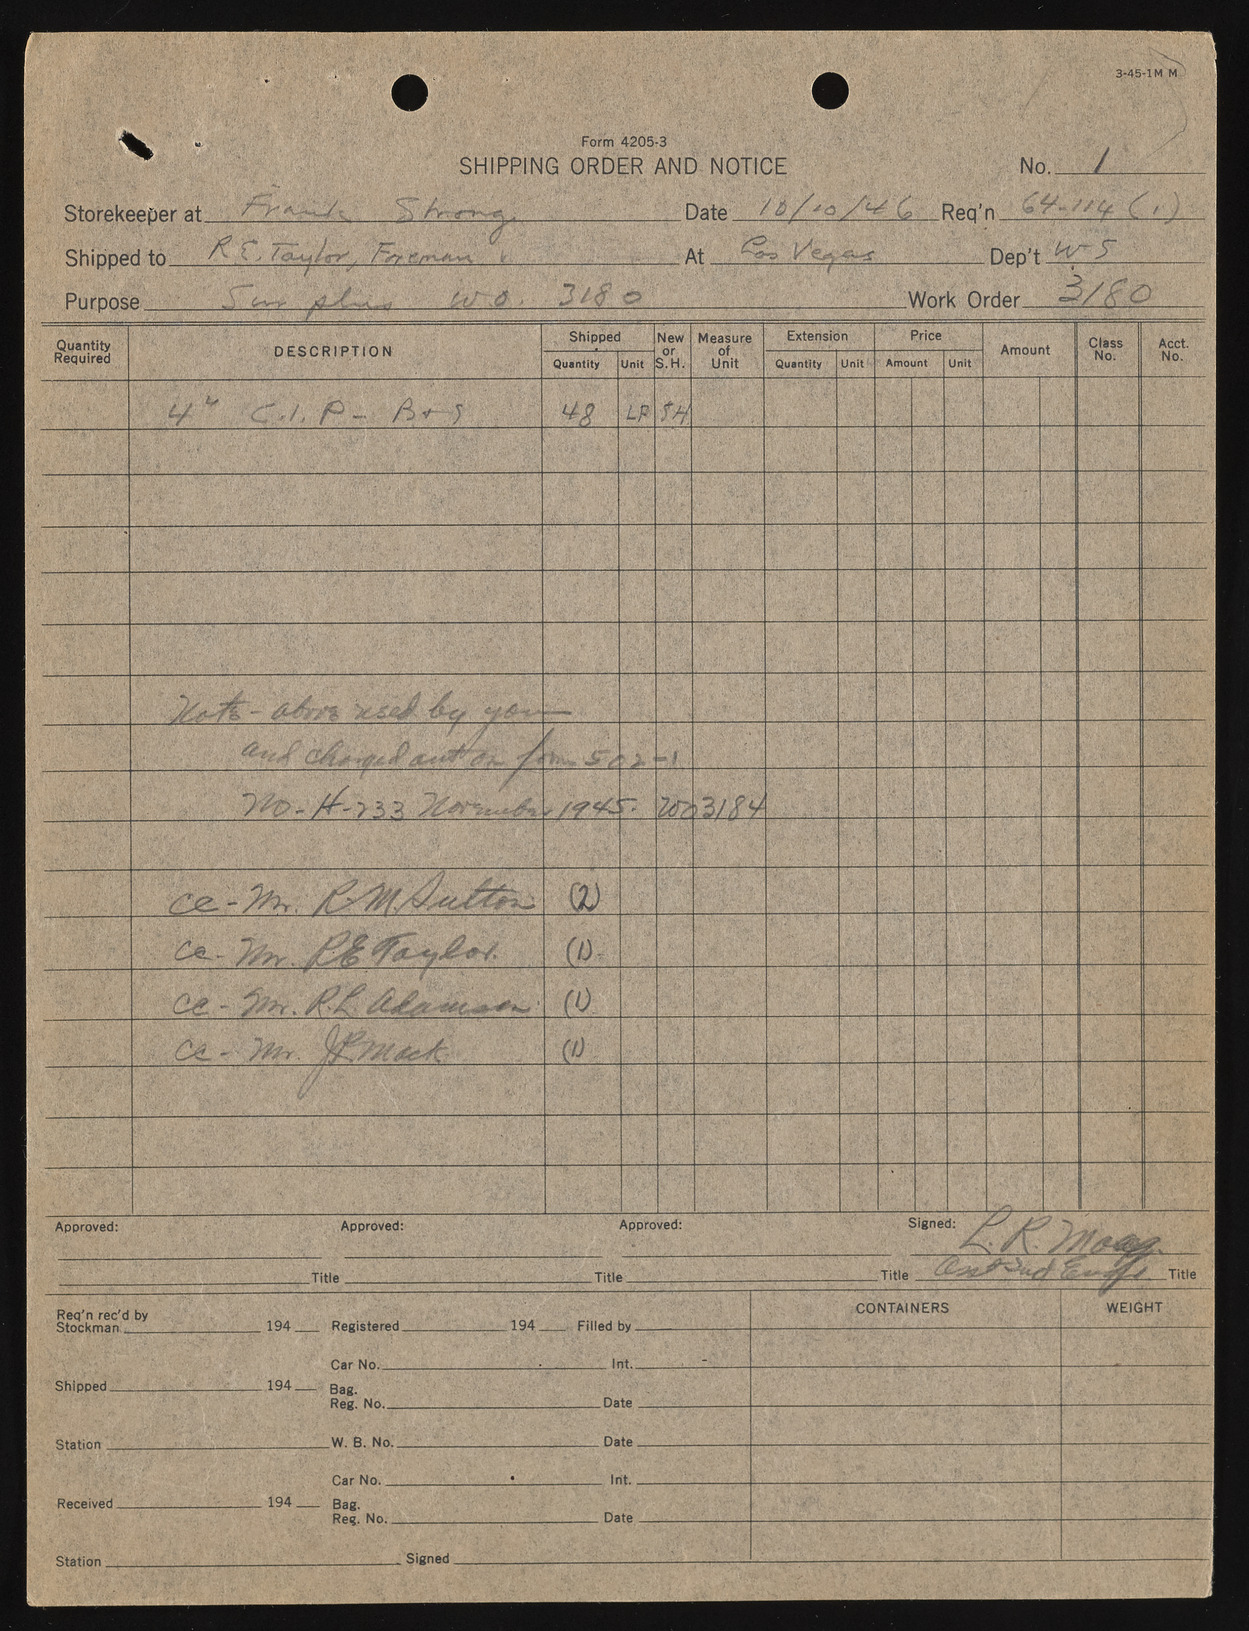 3-45-1M M
Form 4205-3
SHIPPING ORDER AND NOTICE
No. 1
Storekeeper at Frank Strong Date 10/10/46 Req'n 64-114 (1)
Shipped to R.E. Taylor, Foreman At Las Vegas Dep't WS
Purpose Surplus W O. 3180 Work Order 3180
Quantity Required DESCRIPTION Shipped Quantity Unit New or S.H. Measure of Unit Extension Quantity Unit Price Amount Unit Amount Class No. Acct. No.
4" C.I.P- B+S 48 LF SH
Note - above used by you
and charged out on form 502-1
No-H-233 November 1945. WO3184
cc - Mr. R M. Sutton (2)
cc - Mr. R E Taylor. (1)
cc - Mr. R.L. Adamson (1)
cc - Mr. J R Mack (1)
Approved: Approved: Approved: Signed: L. R. 
Title Title Title Asst Title
Req'n rec'd by
Stockman 194 Registered 194 Filled by CONTAINERS WEIGHT
Car No. Int.
Shipped 194 Bag.
Reg. No. Date
Station W. B. No. Date
Car No. Int.
Received 194 Bag.
Reg. No. Date
Station Signed